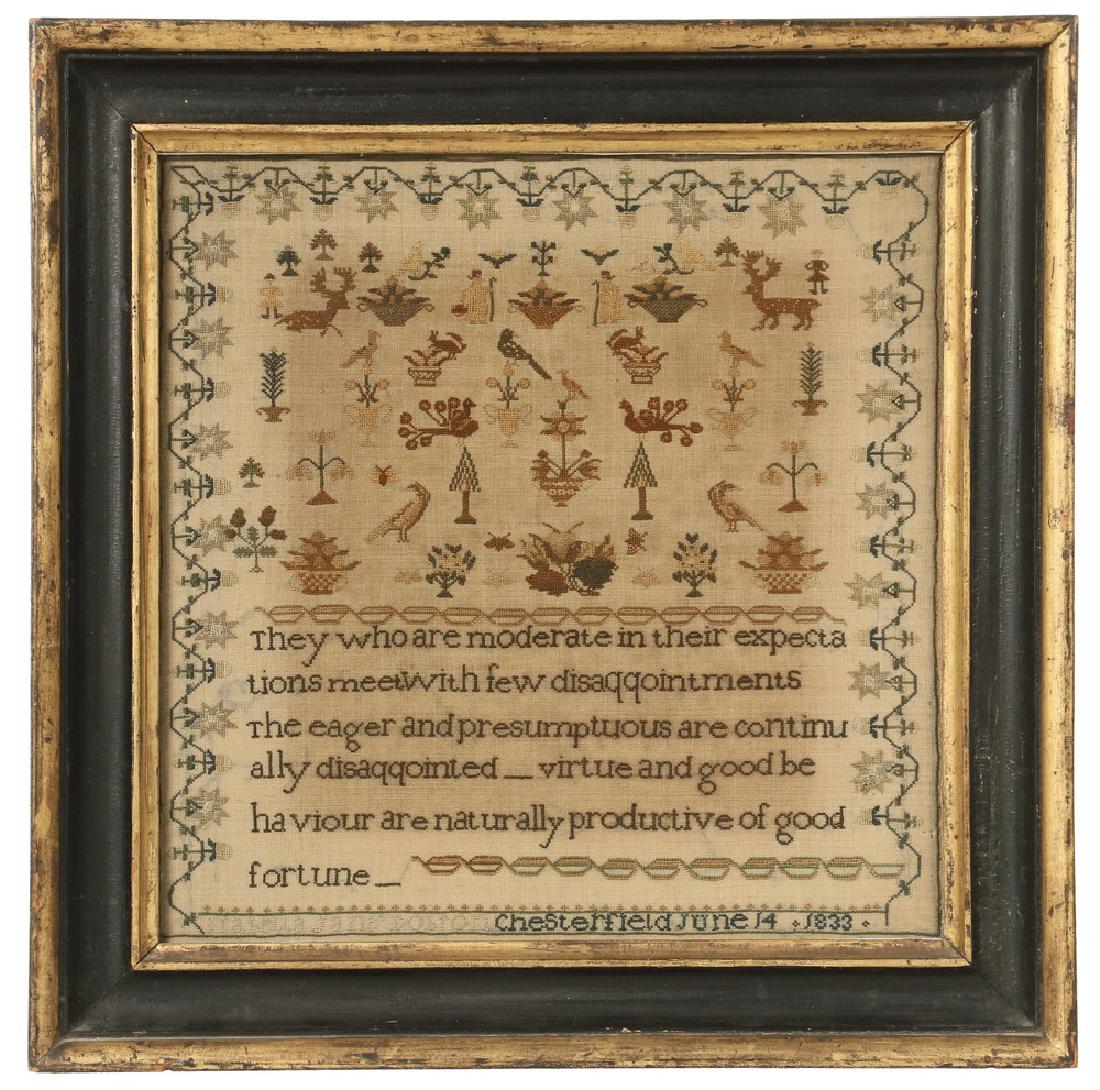 They who are moderate in their expecta
tions meet with few disaqqointments
The eager and presumptuous are continu
ally disaqqointed _ virtue and good be
haviour are naturally productive of good
fortune _
Chesterfield June 14 1833